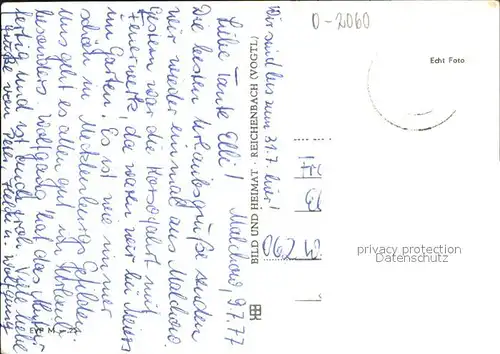 Malchow, 9.7.77
Liebe Tante Elli!
Die besten Urlaubsgrüße senden
wir wieder einmal aus Malchow.
Gestern war die Korsofahrt mit
Feuerwerk, da waren wir bei
im Garten. Es ist wie immer
schön in Mecklenburgs Gefilden.
Uns geht es allen gut im Urlaub,
besonders Wolfgang hat das Abitur
fertig und ist auch froh. Viele liebe
Grüße von Peter, u. Wolfgang
Wir sind bis zum 31.7. hier!
BILD UND HEIMAT · REICHENBACH (VOGTL)
0-2060
Echt Foto
privacy protection
Datenschutz